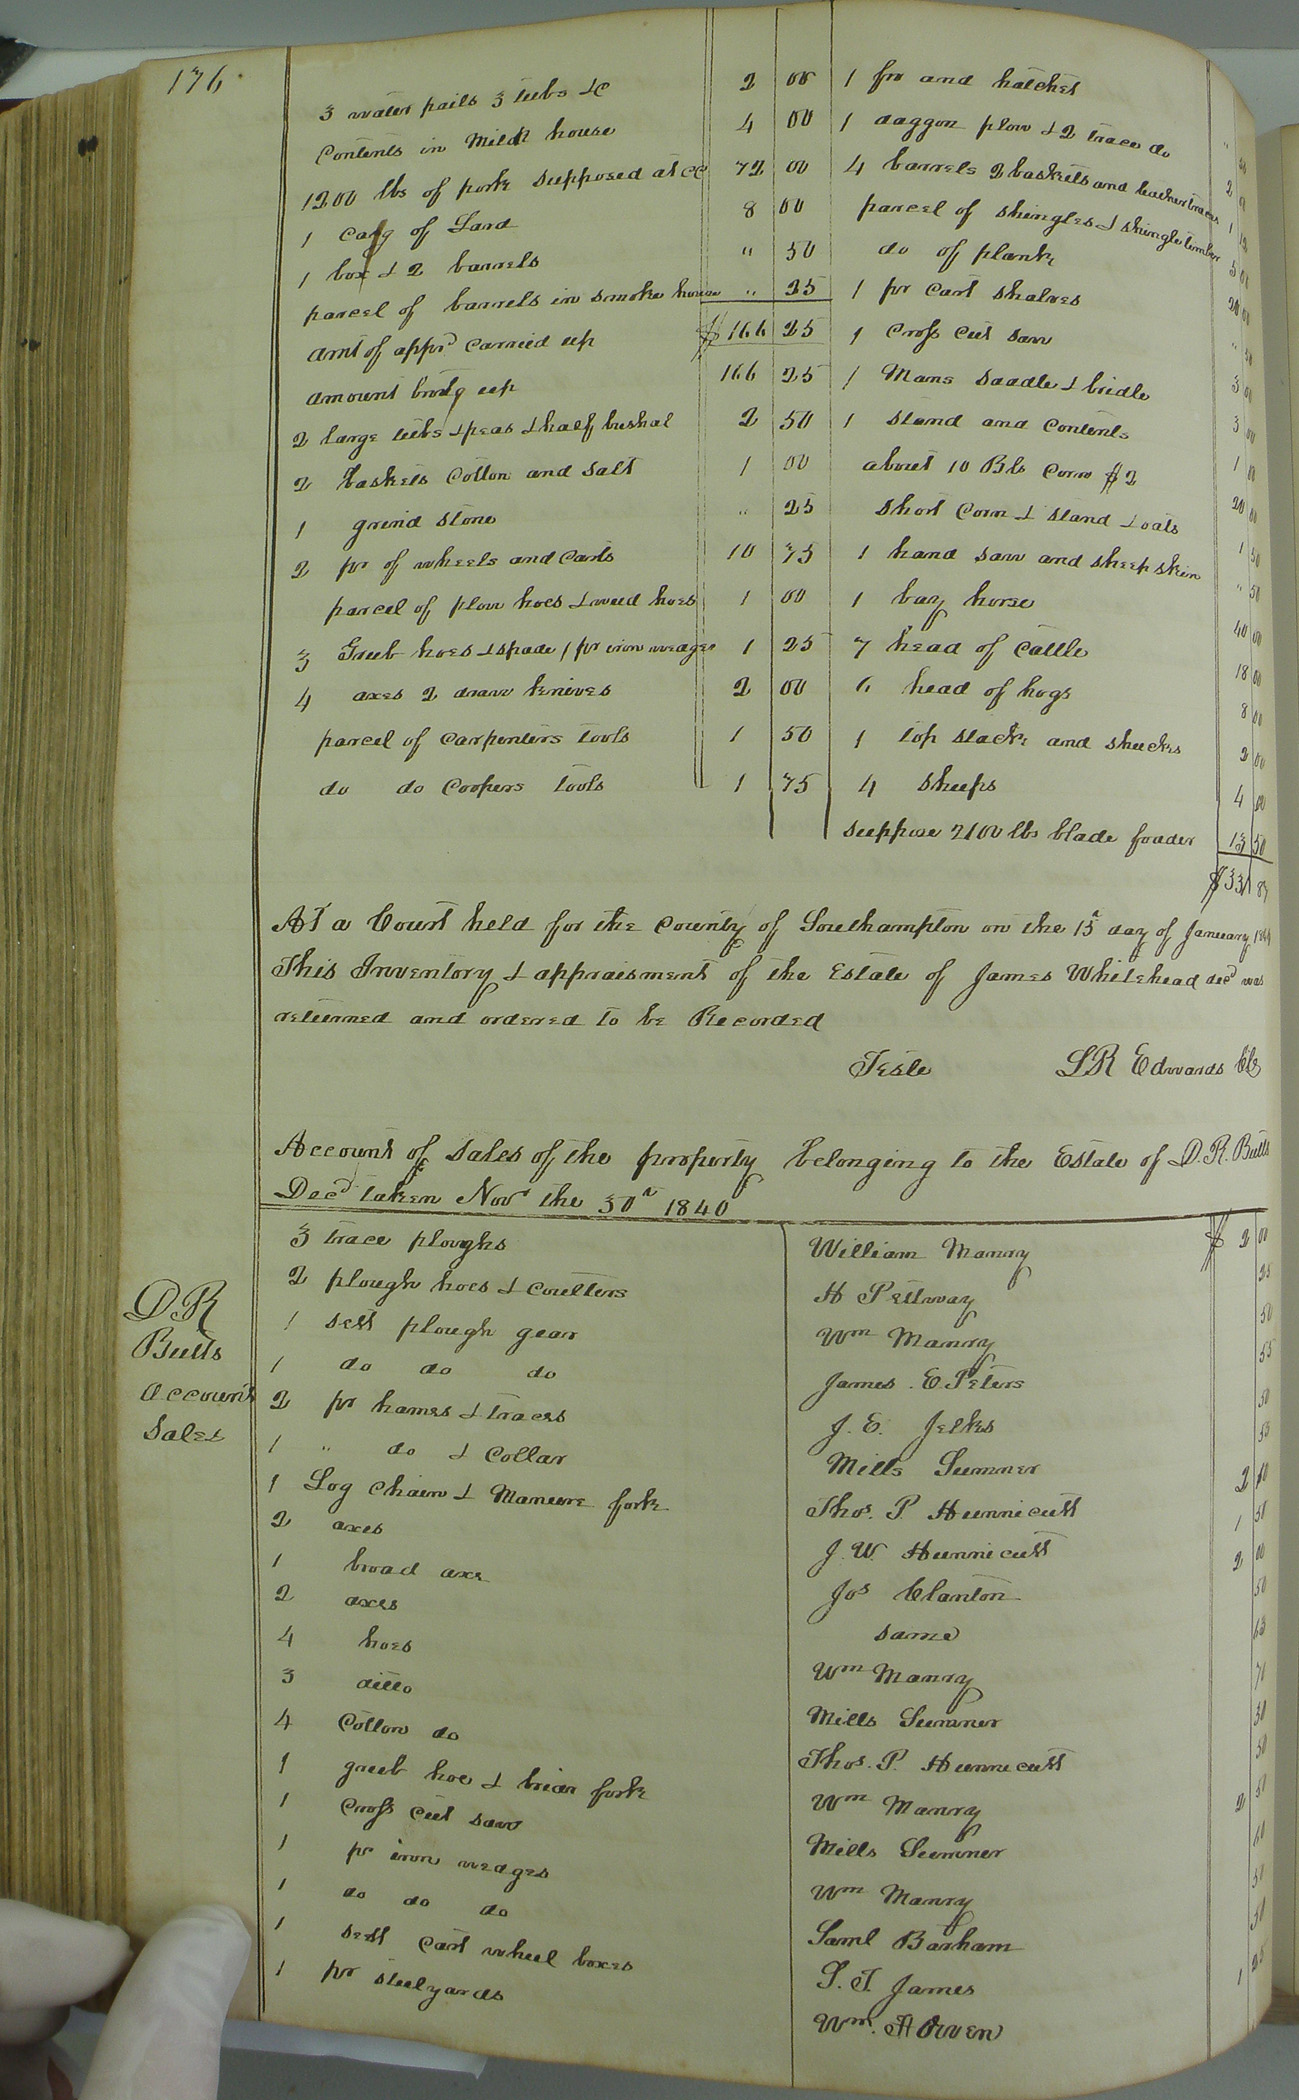 176
3 water pails 3 tubs &c 2 00
Contents in Milk house 4 00
1200 lbs of pork supposed at CC 72 00
1 Cag of Lard 8 00
1 box & 2 barrels " 50
parcel of barrels in smoke house " 25
amt of appr carried up $166 25
amount brotg up 166 25
2 large tubs & peas & half bushal 2 50
2 baskets Cotton and Salt 1 00
1 grind stone " 25
2 pr of wheels and Carts 10 75
parcel of plow hoes & weed hoes 1 00
3 Grub hoes & spade 1 pr iron wedges 1 25
4 axes 2 draw knives 2 00
parcel of Carpenters tools 1 50
do do Coopers tools 1 75
1 fro and hatchet
1 daggon plow & 2 trace do
4 barrels 2 baskets and leather traces
parcel of shingles & shingle timber
do of plank
1 pr Cart shalves 20 00
1 Cross Cut saw
1 Mans saddle & bridle 3 00
1 stand and Contents 3 00
about 10 Bls Corn $2 1 00
short Corn & stand & oats 20 00
1 hand saw and sheep skin 1 50
1 bay horse " 50
7 head of Cattle 40 00
6 head of hogs 18 00
1 top stack and shucks 8 00
4 sheeps 2 00
suppose 2100 lbs blade fodder 4 00
13 50
$331 87
At a Court held for the County of Southampton on the 15th day of January
This Inventory & appraisment of the Estate of James Whitehead decd was
returned and ordered to be Recorded
Teste LR Edwards Clk
Account of Sales of the property belonging to the Estate of D. R. Butts
Decd taken Novr the 30th 1840
D R
Butts
account
Sales
3 trace ploughs William Manry $2 00
2 plough hoes & Coulters H Pettway 25
1 sett plough gear Wm Manry 50
1 do do do James E. Peters 55
2 pr hames & traces J. E. Jelks 50
1 " do & Collar Mills Sumner 55
1 Log Chain & Manure fork Thos. P. Hunnicutt 2 10
2 axes J. W. Hunnicutt 1 51
1 broad axe Jos Clanton 2 00
2 axes same 50
4 hoes Wm Manry 63
3 ditto Mills Sumner 71
4 Cotton do Thos. P. Hunnicutt 30
1 grub hoe & briar fork Wm Manry 50
1 Cross Cut saw Mills Sumner 2 51
1 pr iron wedges Wm Manry 60
1 do do do Saml Barham 51
1 sett Cart wheel boxes S. T. James 51
1 pr steelyards Wm. H Owen 1 25